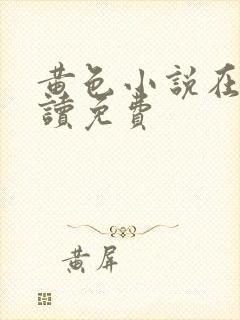 黃色小說在
讀免費
黃屏